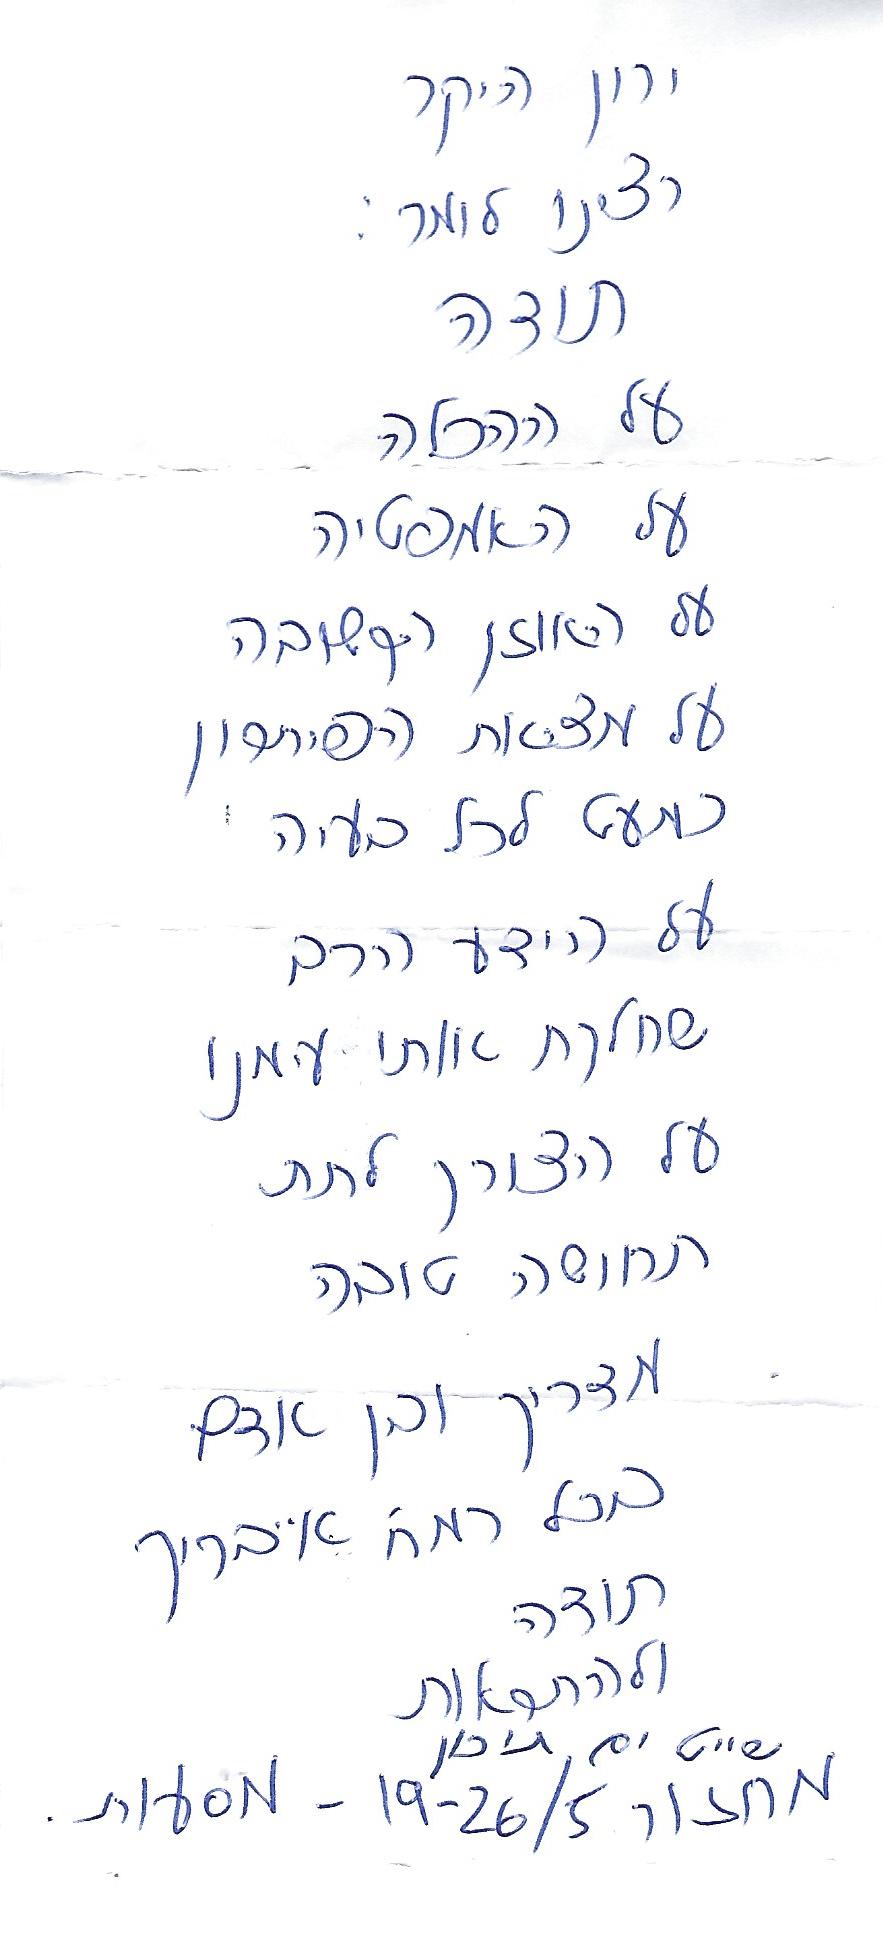 ירון היקר
רצינו לומר:
תודה
על ההכלה
על האמפטיה
על האוזן הקשובה
על מציאת הפיתרון
כמעט לכל בעיה
על הידע הרב
שחלקת אותו עימנו
על הצורך לתת
תחושה טובה
מדריך ובן אדם
בכל רמ"ח איבריך
תודה
ולהתראות
שייט ים תיכון
מחזור 19-26/5 - מסעות.